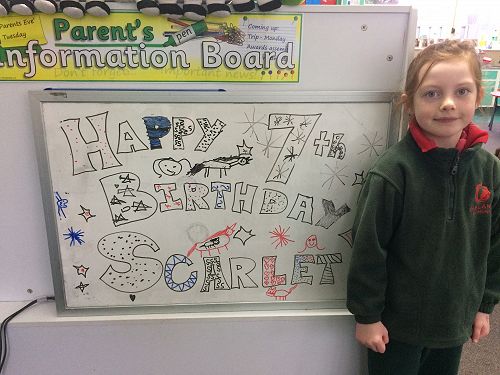 Parents Eve
Tuesday
Parent's
Information Board
Don't forget
important news!
Coming up:
Trip - Monday
Awards assem
HAPPY 7th
BIRTHDAY
SCARLET